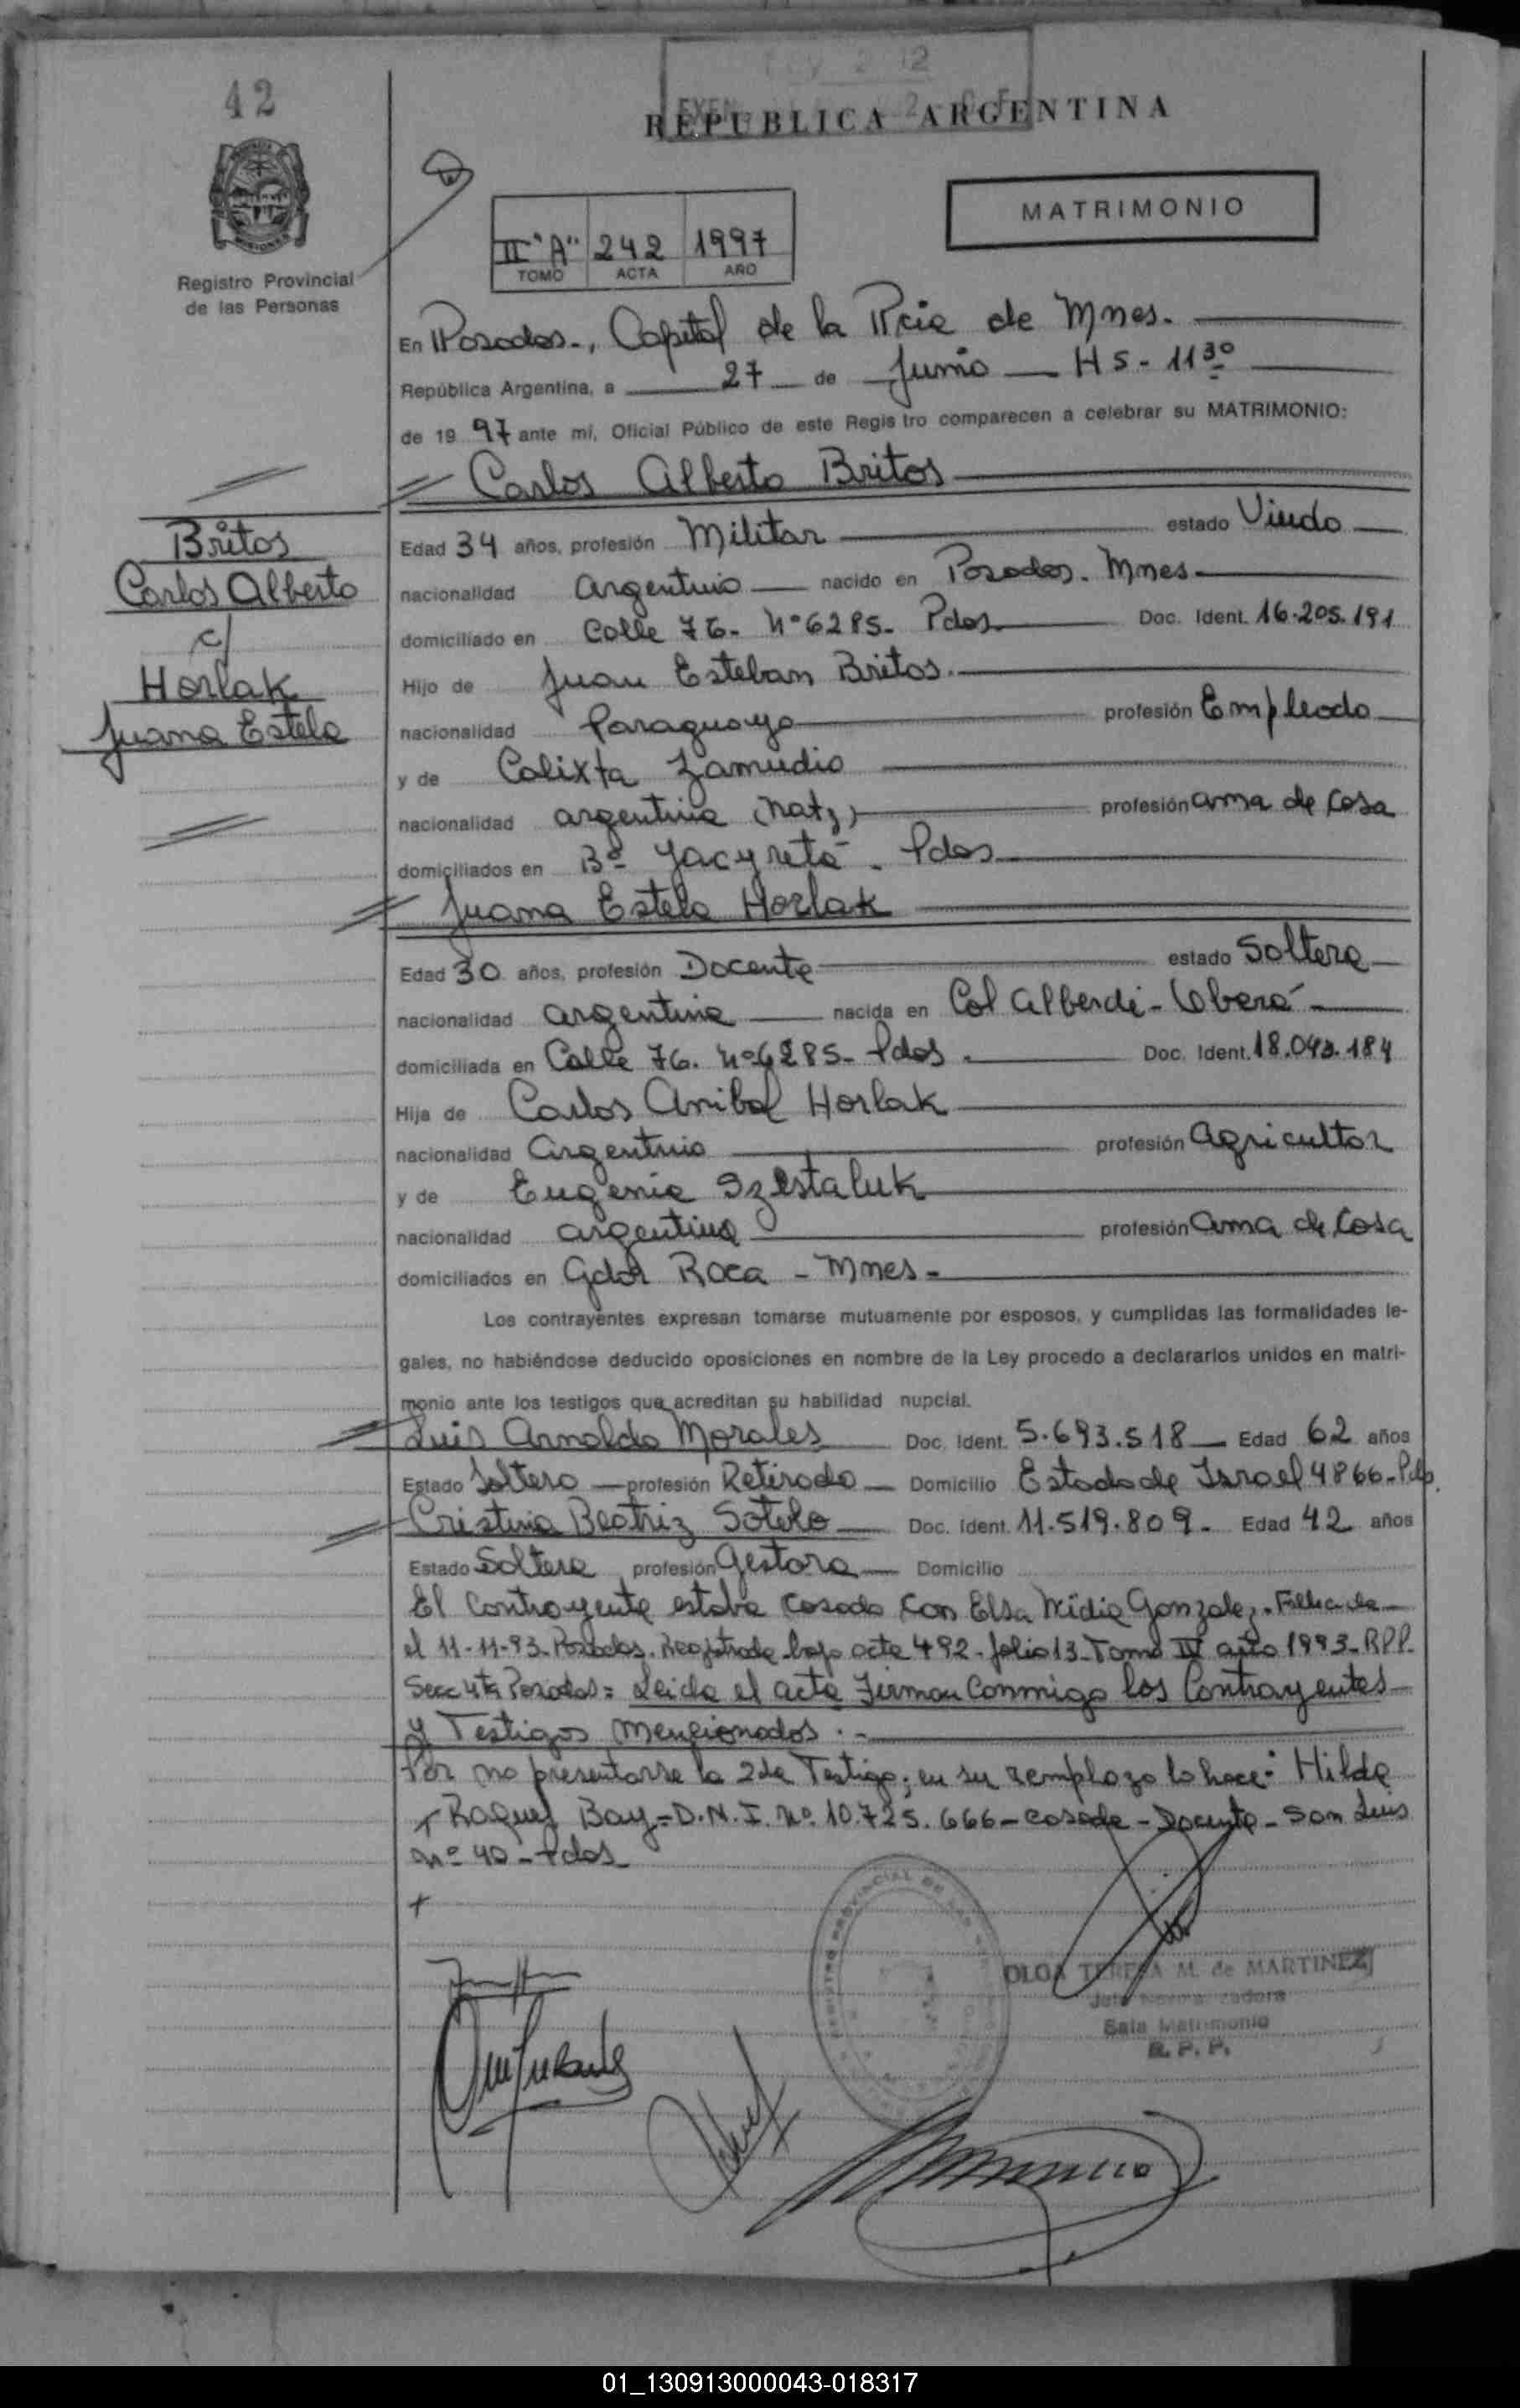 42
REPUBLICA ARGENTINA
MATRIMONIO
II "A" 242 1997
TOMO ACTA AÑO
Registro Provincial
de las Personas
En Posadas., Capital de la Pcia de Mnes.
República Argentina, a 27 de Junio HS - 11 30
de 19 97 ante mí, Oficial Público de este Registro comparecen a celebrar su MATRIMONIO:
Carlos Alberto Britos
Britos
Carlos Alberto
c/
Horlak
Juana Estela
Edad 34 años, profesión Militar estado Viudo
nacionalidad argentino nacido en Posadas. Mnes
domiciliado en Calle 76. Nº 6285. Pdas. Doc. Ident. 16.205.191
Hijo de Juan Esteban Britos.
nacionalidad Paraguayo profesión Empleado
y de Calixta Zamudio
nacionalidad argentina (natz) profesión ama de casa
domiciliados en Bº Yacyretá - Pdas
Juana Estela Horlak
Edad 30 años, profesión Docente estado Soltera
nacionalidad argentina nacida en Col Alberdi - Oberá
domiciliada en Calle 76. nº 6285 - Pdas. Doc. Ident. 18.043.184
Hija de Carlos Anibal Horlak
nacionalidad argentino profesión agricultor
y de Eugenia Szestaluk
nacionalidad argentina profesión ama de casa
domiciliados en Gdor Roca - Mnes -
Los contrayentes expresan tomarse mutuamente por esposos, y cumplidas las formalidades le-
gales, no habiéndose deducido oposiciones en nombre de la Ley procedo a declararlos unidos en matri-
monio ante los testigos que acreditan su habilidad nupcial.
Luis Arnoldo Morales Doc. Ident. 5.693.518 Edad 62 años
Estado Soltero profesión Retirado Domicilio Estado de Israel 4866 - Pdas.
Cristina Beatriz Sotelo Doc. Ident. 11.519.809. Edad 42 años
Estado Soltera profesión Gestora Domicilio
El Contrayente estaba casado con Elsa Nidia Gonzalez. Fallecida
el 11-11-93. Posadas. Registrada bajo acta 492 - folio 13 - Tomo IV año 1993 - RPP.
Secc 4ta Posadas = Leida el acta Firman Conmigo los Contrayentes
y Testigos mencionados. -
Por no presentarse la 2da Testigo; en su remplazo lo hace: Hilda
+ Raquel Bay = D.N.I. Nº 10.725.666 - casada - Docente - San Luis
nº 40 - Pdas
+
OLGA TERESA M. de MARTINEZ
Sala Matrimonio
R. P. P.
01_130913000043-018317